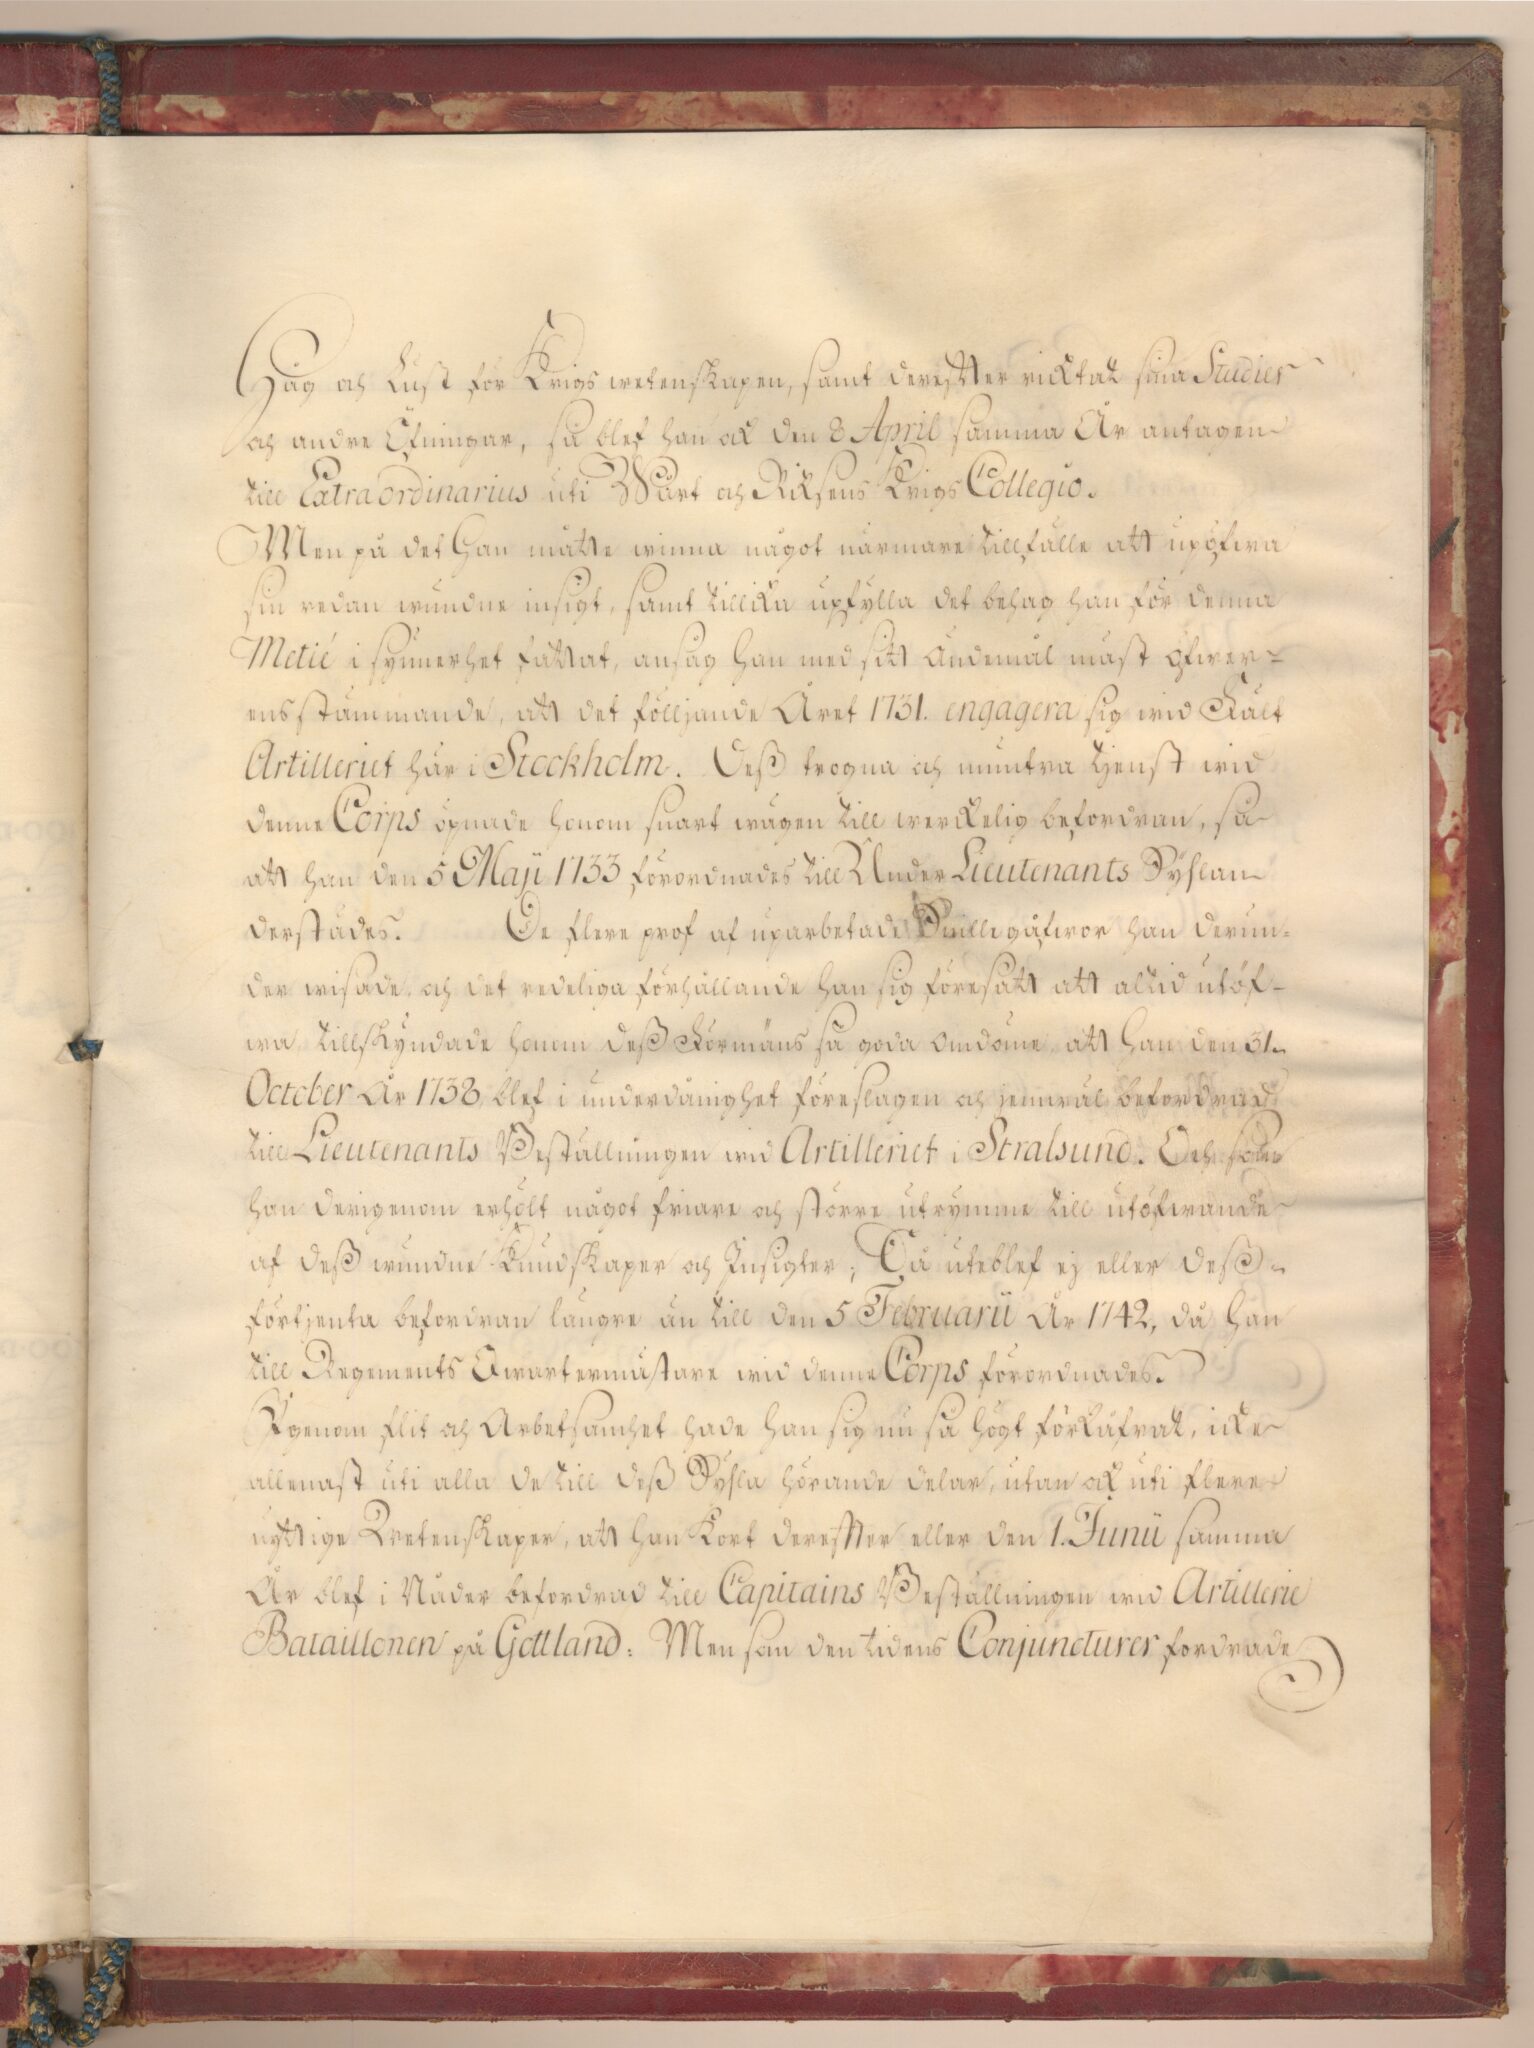 Håg och Lust för Krigswetenskapen, samt derefter ricktat sina Studier
och andre Öfningar, så blef han ock den 8 April samma År antagen
till Extraordinarius uti Wårt och Riksens Krigs Collegio.
Men på det Han måtte winna något närmare tillfälle att upöfwa
sin redan wundne insigt, samt tillika upfylla det behag han för denna
Metié i synnerhet fattat, ansåg han med sitt ändemål mäst öfwer-
ensstämmande, att det följande Året 1731. engagera sig wid Fält
Artilleriet här i Stockholm. Deß trogna och muntra tjenst wid
denne Corps öpnade honom snart wägen till werckelig befordran, så
att han den 5 Maji 1733 förordnades till Under Lieutenants Syslan
derstädes. De flere prof af uparbetade Snillegåfwor han derun-
der wisade, och det redeliga förhållande han sig föresatt att altid utöf-
wa, tillskyndade honom deß Förmäns så goda omdöme, att han den 31
October År 1738 blef i underdånighet föreslagen och jemwäl befordrad
till Lieutenants Beställningen wid Artilleriet i Stralsund. Och som
han derigenom erhölt något friare och större utrymme till utöfwande
af deß wundne Kundskaper och Insigter; Så uteblef ej eller deß
förtjenta befordran längre än till den 5 Februarii År 1742, då han
till Regements Qwartermästare wid denne Corps förordnades.
Igenom flit och Arbetsamhet hade han sig nu så högt förkåfrat, icke
allenast uti alla de till deß Sysla hörande delar, utan ock uti flere
nyttige Wetenskaper, att han kort derefter eller den 1. Junii samma
År blef i Nåder befordrad till Capitains Beställningen wid Artillerie
Bataillonen på Gottland: Men som den tidens Conjuncturer fordrade